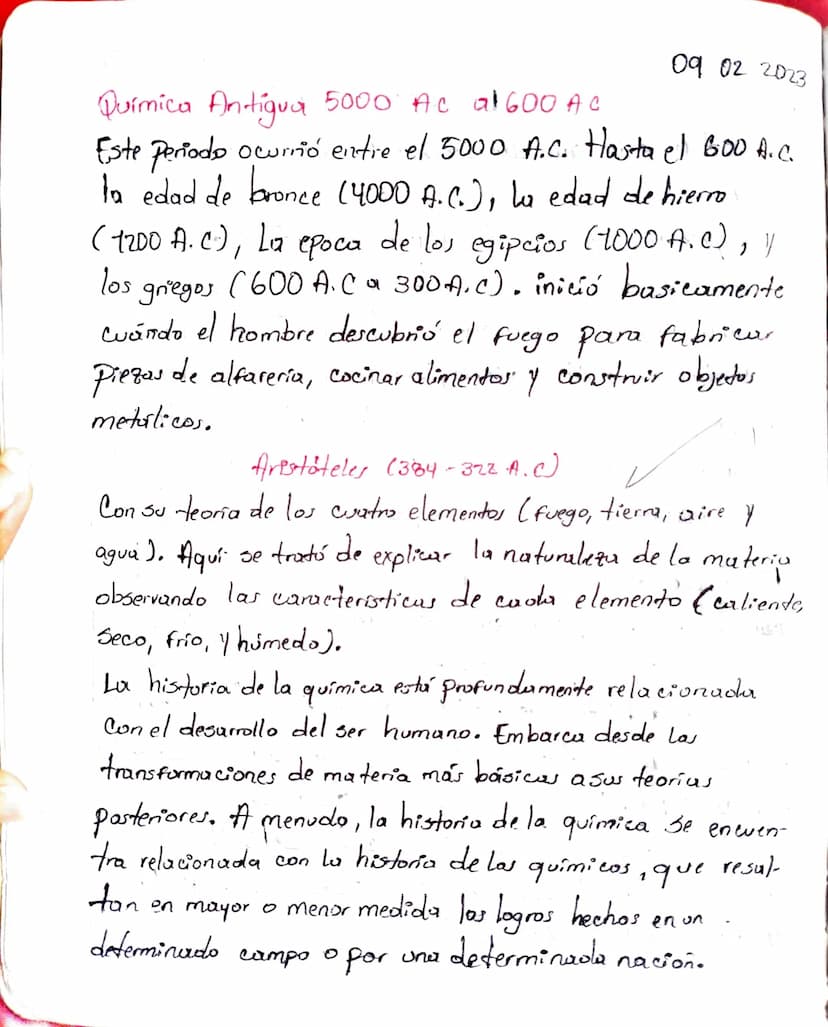 09 02 2023
Química Antigua 5000 AC al 600 AC
Este periodo ocurrió entre el 5000 A.C. Hasta el 600 A.C.
la edad de bronce (4000 A.C.), la edad de hierro
(1200 A.C), La epoca de los egipcios (1000 A.C), y
los griegos (600 A.C a 300 A.C). inició basicamente
cuándo el hombre descubrió el fuego para fabricar
Piezas de alfarería, cocinar alimentos y construir objetos
metálicos.
Aristóteles (384-322 A.C)
Con su teoría de los cuatro elementos (fuego, tierra, aire y
agua). Aquí se trató de explicar la naturaleza de la materia
observando las características de cada elemento (caliende,
seco, frío, y húmedo).
La historia de la química está profundamente relacionada
con el desarrollo del ser humano. Embarca desde las
transformaciones de materia más básicas a sus teorías
posteriores. A menudo, la historia de la química se encuen-
tra relacionada con la historia de los químicos, que resul-
tan en mayor o menor medida los logros hechos en un
determinado campo o por una determinada nación.